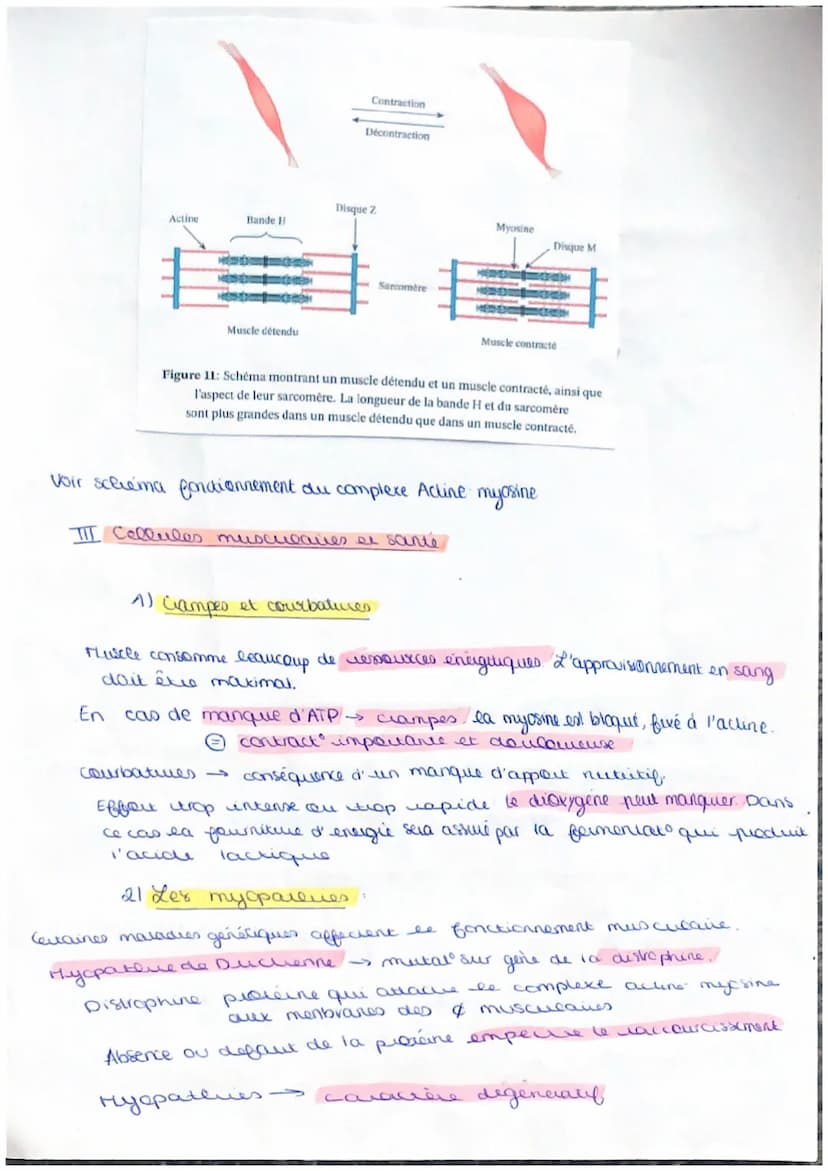 Contraction
Décontraction
Disque Z
Actine
Bande H
Myosine
Disque M
Sarcomère
Muscle détendu
Muscle contracté
Figure 11: Schéma montrant un muscle détendu et un muscle contracté, ainsi que
l'aspect de leur sarcomère. La longueur de la bande H et du sarcomère
sont plus grandes dans un muscle détendu que dans un muscle contracté.
Voir schéma fonctionnement du complexe Actine myosine
III Cellules musculaires et santé
1) Crampes et courbatures
Muscle consomme beaucoup de ressources énergétiques L'approvisionnement en sang
doit être maximal.
En cas de manque d'ATP → crampes la myosine est bloqué, fixé à l'actine.
= contract° importante et douloureuse
Courbatures → conséquence d'un manque d'apport nutritif.
Effort trop intense ou trop rapide le dioxygène peut manquer. Dans
ce cas la fourniture d'énergie sera assuré par la fermentat° qui produit
l'acide lactique
2) Les myopathies :
Certaines maladies génétiques affectent le fonctionnement musculaire.
Myopathie de Duchenne → mutat° sur gène de la distrophine.
Distrophine protéine qui attache le complexe actine myosine
aux menbranes des ¢ musculaires
Absence ou défaut de la protéine empêche le raccourcissement
Myopathies → caractère dégénératif